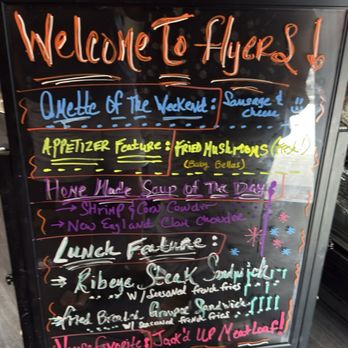 Welcome To Flyers
Omette Of The Weekend: Sausage & cheese !!
Appetizer Feature: Fried Mushrooms
(Baby Bellas)
Home Made Soup of The Day
→ Shrimp & Corn Cowder
→ New England Clam Chowder
Lunch Feature:
→ Ribeye Steak Sandwich
w/ seasoned french fries
→ Fried Breaded Grouper Sandwich !!!!
w/ seasoned french fries
House Favorite: Jack'd Up Meatloaf!